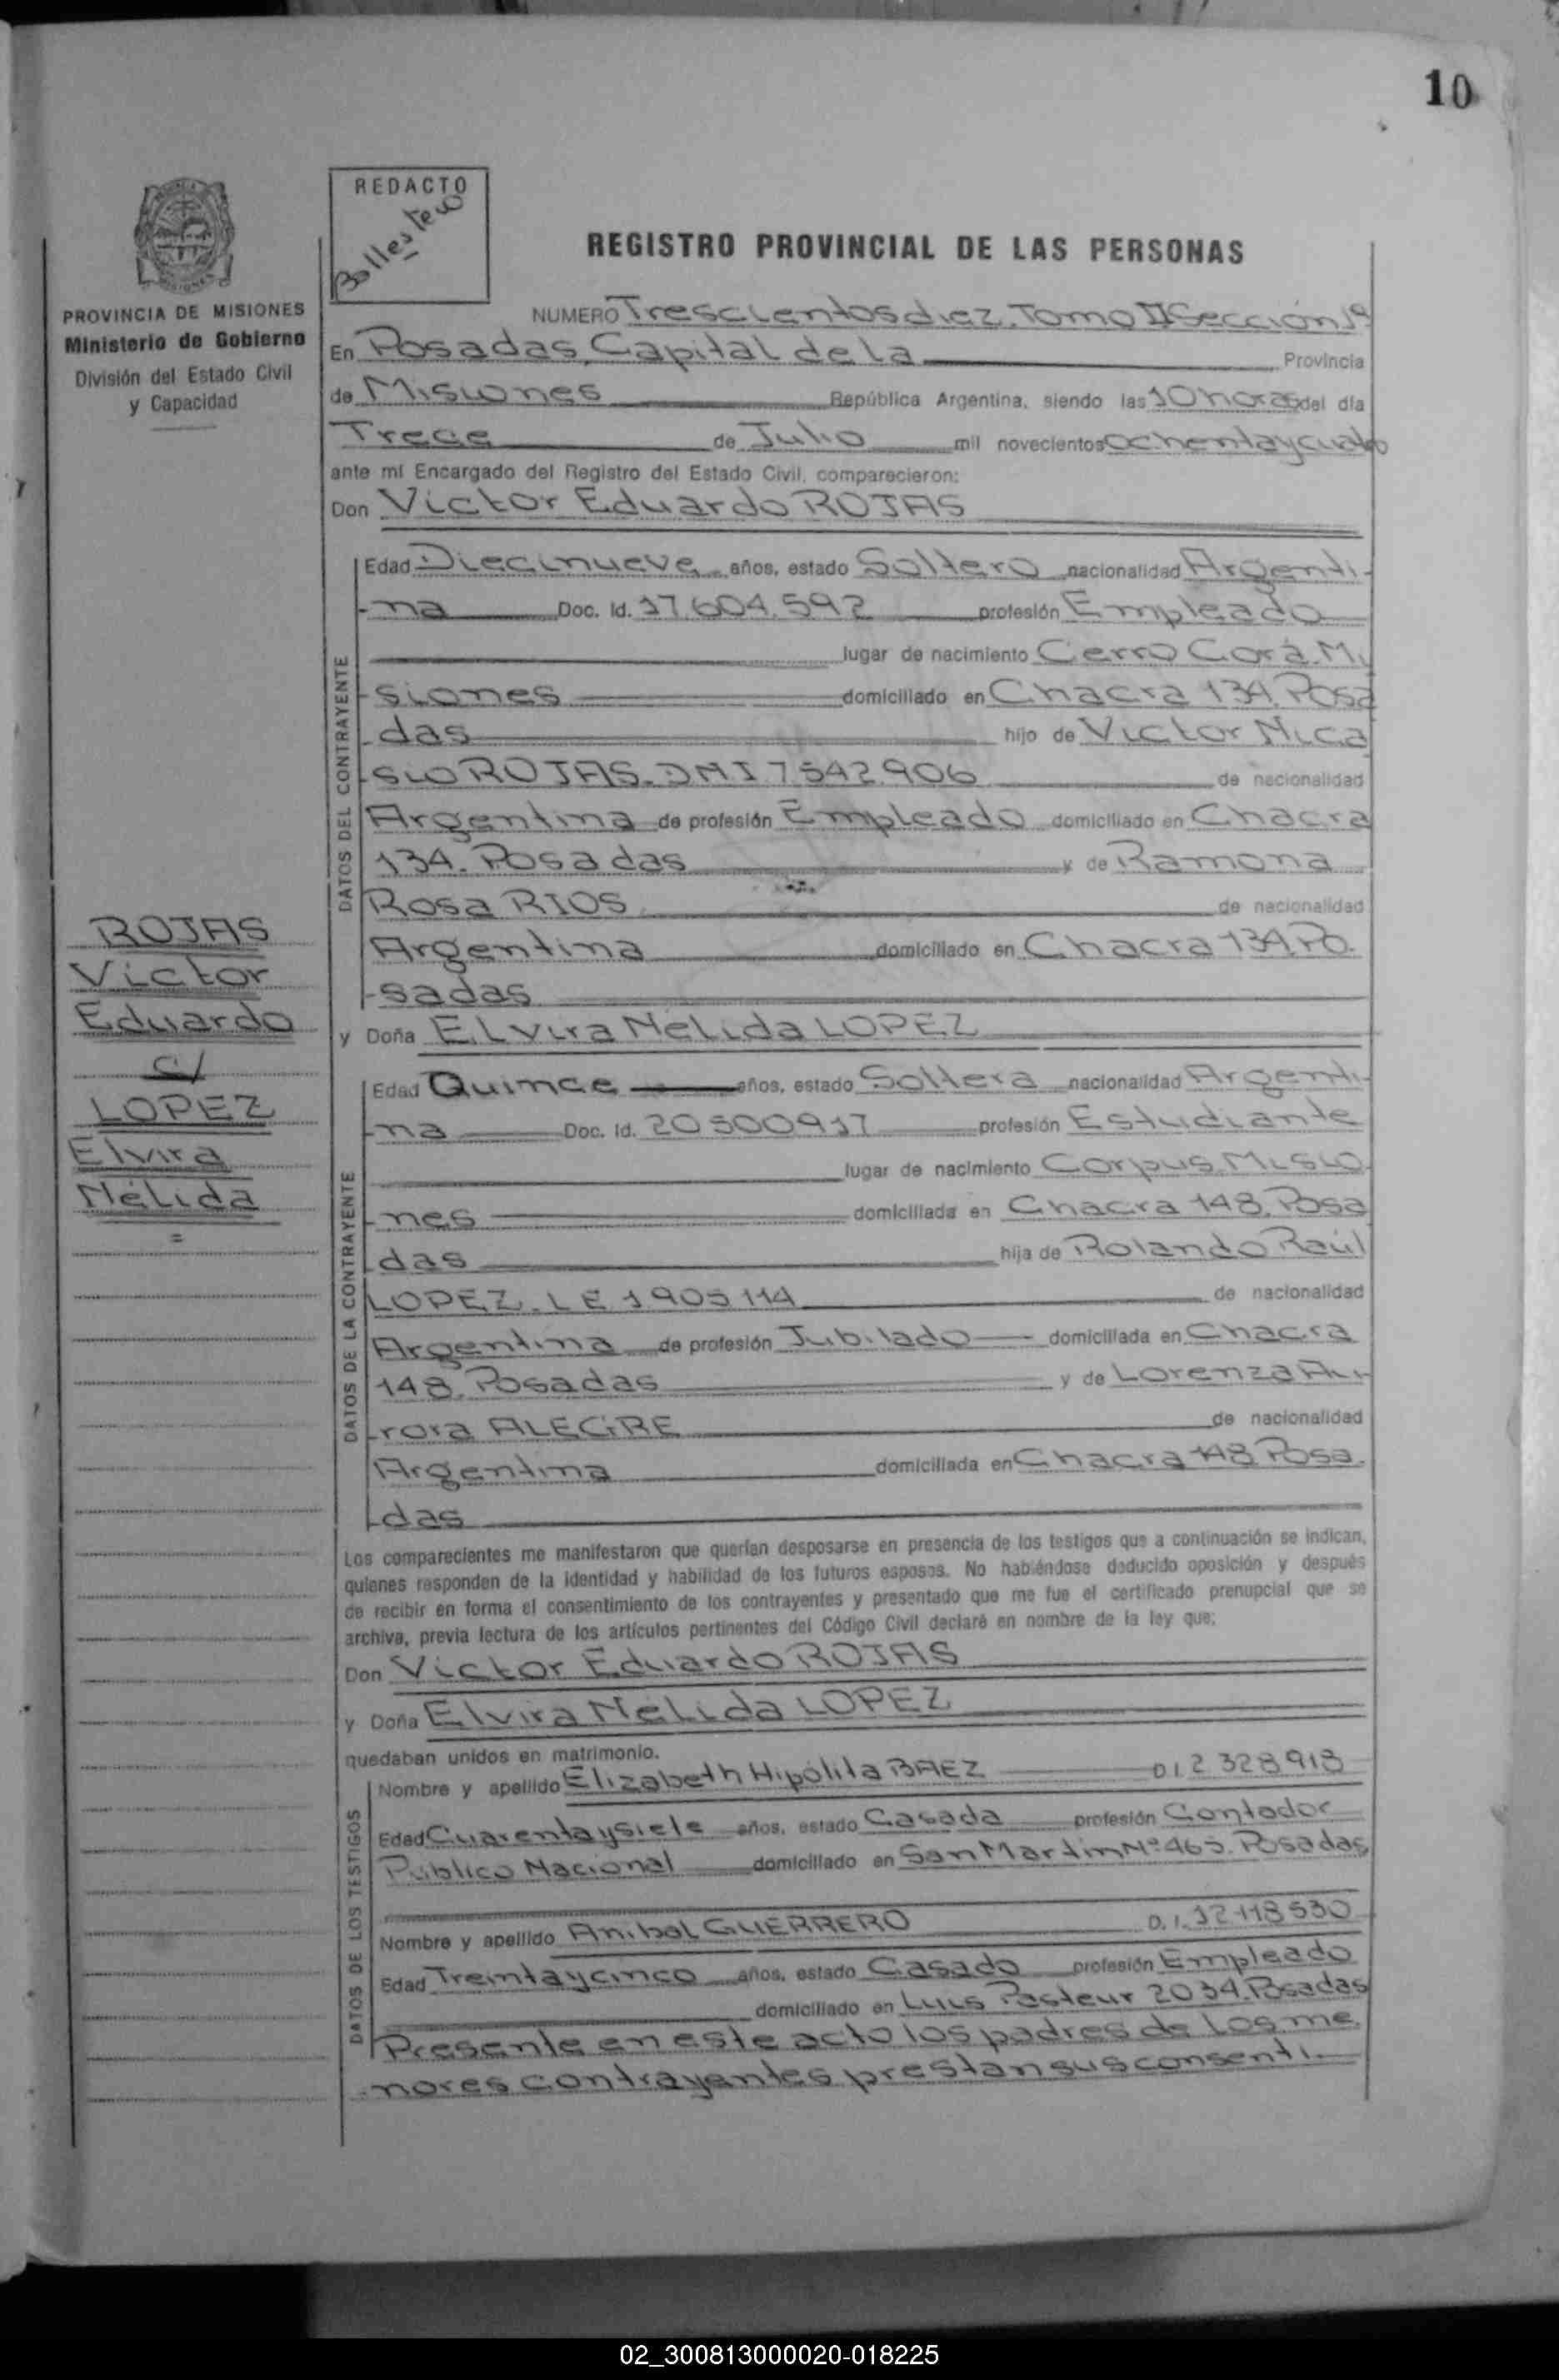 10
REDACTO
Ballestero
REGISTRO PROVINCIAL DE LAS PERSONAS
PROVINCIA DE MISIONES
Ministerio de Gobierno
División del Estado Civil
y Capacidad
NUMERO Trescientos diez. Tomo II Sección 1ª
En Posadas, Capital de la Provincia
de Misiones República Argentina, siendo las 10 horas del día
Trece de Julio mil novecientos ochenta y cuatro
ante mí Encargado del Registro del Estado Civil, comparecieron:
Don Victor Eduardo ROJAS
DATOS DEL CONTRAYENTE
Edad Diecinueve años, estado Soltero nacionalidad Argenti-
-na Doc. Id. 17.604.592 profesión Empleado
lugar de nacimiento Cerro Corá. Mi
siones domiciliado en Chacra 134. Posa
das hijo de Victor Nica
sio ROJAS. DNI 7542.906 de nacionalidad
Argentina de profesión Empleado domiciliado en Chacra
134. Posadas y de Ramona
Rosa RIOS de nacionalidad
Argentina domiciliado en Chacra 134 Po-
-sadas
y Doña Elvira Nelida LOPEZ
ROJAS
Victor
Eduardo
c/
LOPEZ
Elvira
Nélida
=
DATOS DE LA CONTRAYENTE
Edad Quince años, estado Soltera nacionalidad Argenti-
-na Doc. Id. 20500917 profesión Estudiante
lugar de nacimiento Corpus. Misio
-nes domiciliada en Chacra 148. Posa
das hija de Rolando Raúl
LOPEZ. LE 1905114 de nacionalidad
Argentina de profesión Jubilado domiciliada en Chacra
148. Posadas y de Lorenza Au-
rora ALEGRE de nacionalidad
Argentina domiciliada en Chacra 148 Posa-
das
Los comparecientes me manifestaron que querían desposarse en presencia de los testigos que a continuación se indican,
quienes responden de la identidad y habilidad de los futuros esposos. No habiéndose deducido oposición y después
de recibir en forma el consentimiento de los contrayentes y presentado que me fue el certificado prenupcial que se
archiva, previa lectura de los artículos pertinentes del Código Civil declaré en nombre de la ley que:
Don Victor Eduardo ROJAS
y Doña Elvira Nelida LOPEZ
quedaban unidos en matrimonio.
DATOS DE LOS TESTIGOS
Nombre y apellido Elizabeth Hipólita BAEZ D.I. 2 328918
Edad Cuarenta y siete años, estado Casada profesión Contador
Público Nacional domiciliado en San Martin Nº 465. Posadas
Nombre y apellido Anibal GUERRERO D.I. 12118530
Edad Treinta y cinco años, estado Casado profesión Empleado
domiciliado en Luis Pasteur 2034. Posadas
Presente en este acto los padres de los me-
nores contrayentes prestan sus consenti-
02_300813000020-018225